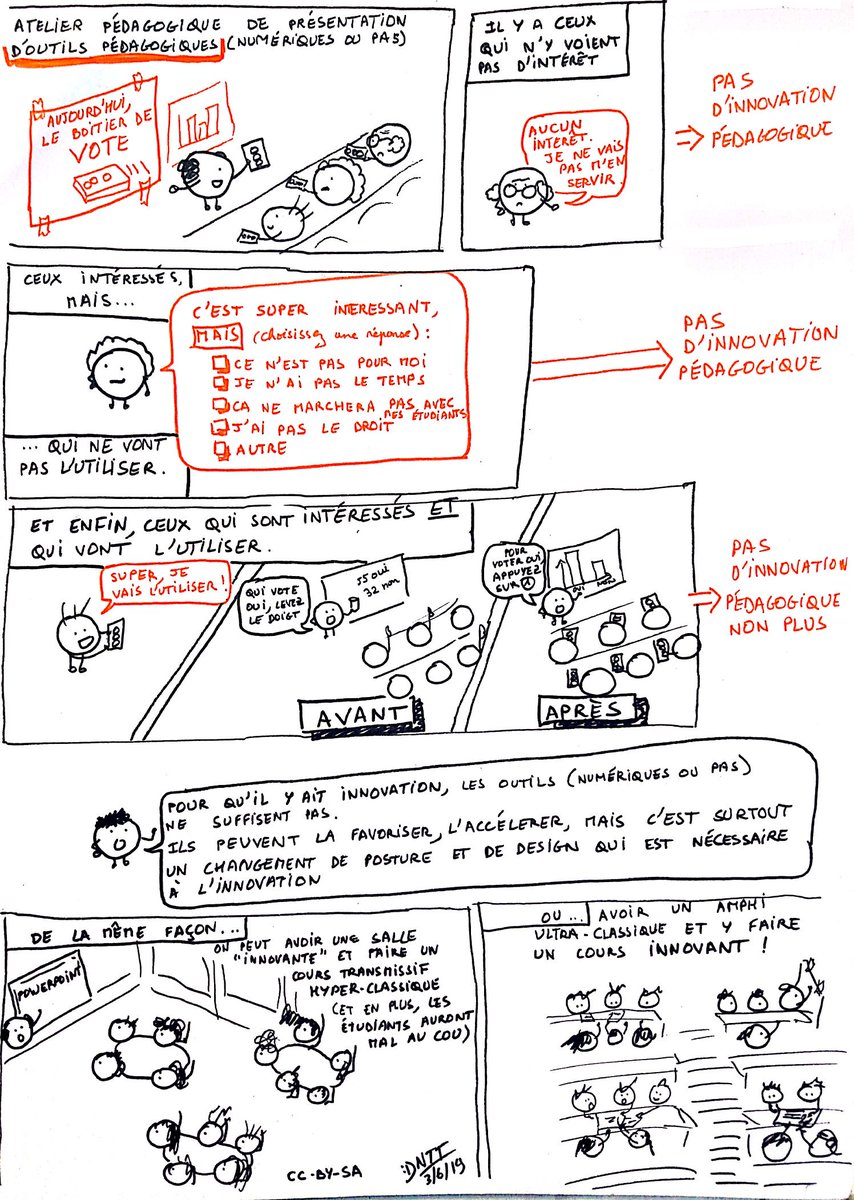 ATELIER PÉDAGOGIQUE DE PRÉSENTATION
D'OUTILS PÉDAGOGIQUES (NUMÉRIQUES OU PAS)
AUJOURD'HUI,
LE BOITIER DE
VOTE
IL Y A CEUX
QUI N'Y VOIENT
PAS D'INTÉRÊT
AUCUN
INTÉRÊT.
JE NE VAIS
PAS M'EN
SERVIR.
PAS
D'INNOVATION
PÉDAGOGIQUE
CEUX INTÉRESSÉS,
MAIS...
C'EST SUPER INTERESSANT,
MAIS (choisissez une réponse) :
CE N'EST PAS POUR MOI
JE N'AI PAS LE TEMPS
CA NE MARCHERA PAS AVEC
MES ÉTUDIANTS
J'AI PAS LE DROIT
AUTRE
... QUI NE VONT
PAS L'UTILISER.
PAS
D'INNOVATION
PÉDAGOGIQUE
ET ENFIN, CEUX QUI SONT INTÉRESSÉS ET
QUI VONT L'UTILISER.
SUPER, JE
VAIS L'UTILISER !
QUI VOTE
OUI, LEVEZ
LE DOIGT
35 oui
32 non
AVANT
POUR
VOTER OUI
APPUYEZ
SUR A
OUI
APRÈS
PAS
D'INNOVATION
PÉDAGOGIQUE
NON PLUS
POUR QU'IL Y AIT INNOVATION, LES OUTILS (NUMÉRIQUES OU PAS)
NE SUFFISENT PAS.
ILS PEUVENT LA FAVORISER, L'ACCÉLERER, MAIS C'EST SURTOUT
UN CHANGEMENT DE POSTURE ET DE DESIGN QUI EST NÉCESSAIRE
À L'INNOVATION
DE LA MÊME FAÇON...
ON PEUT AVOIR UNE SALLE
"INNOVANTE" ET FAIRE UN
COURS TRANSMISSIF
HYPER-CLASSIQUE
(ET EN PLUS, LES
ÉTUDIANTS AURONT
MAL AU COU)
POWERPOINT
OU... AVOIR UN AMPHI
ULTRA-CLASSIQUE ET Y FAIRE
UN COURS INNOVANT !
CC-BY-SA
:DNTT
3/6/19